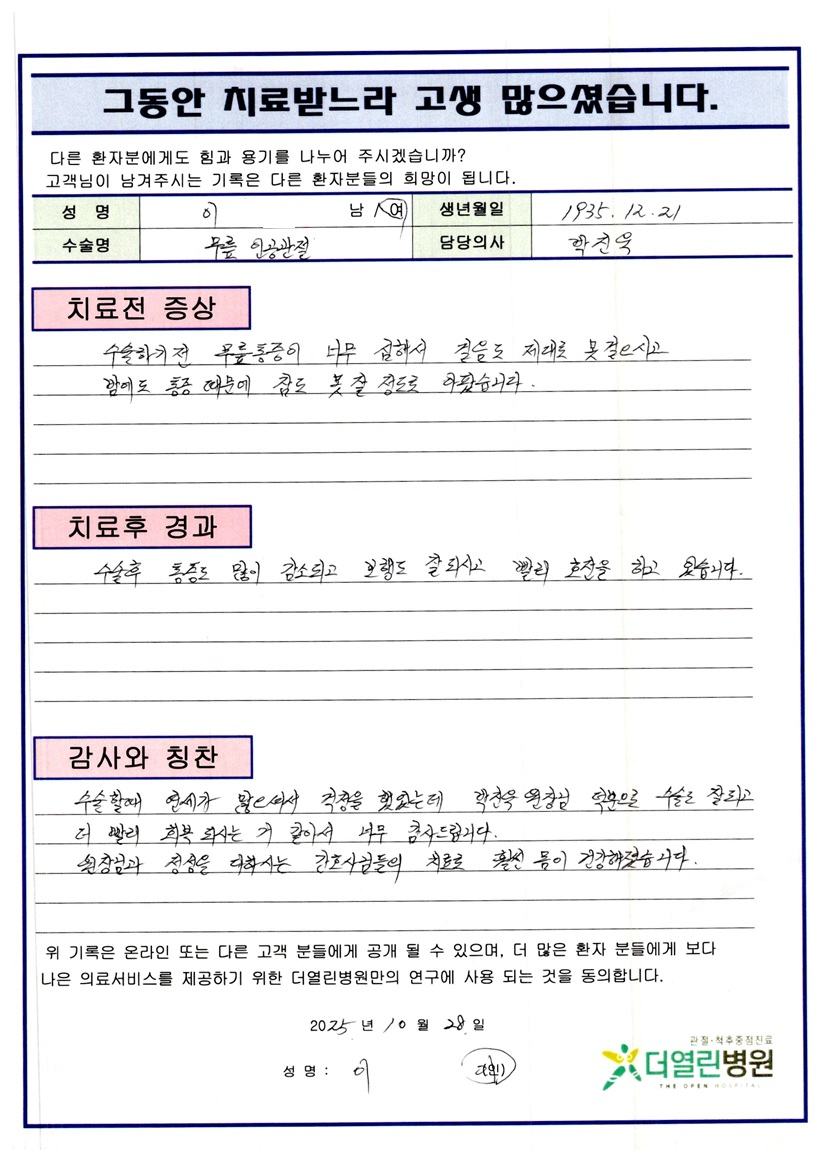 그동안 치료받느라 고생 많으셨습니다.
다른 환자분에게도 힘과 용기를 나누어 주시겠습니까?
고객님이 남겨주시는 기록은 다른 환자분들의 희망이 됩니다.
성 명 이 남 / 여 생년월일 1935. 12. 21
수술명 무릎 인공관절 담당의사 학진욱
치료전 증상
수술하기전 무릎통증이 너무 심해서 걸음도 제대로 못걸으시고
밤에도 통증 때문에 잠도 못잘 정도로 아팠습니다.
치료후 경과
수술후 통증도 많이 감소되고 보행도 잘되시고 빨리 호전을 하고 왔습니다.
감사와 칭찬
수술할때 연세가 많으셔서 걱정을 했었는데 학진욱 원장님 덕분으로 수술도 잘되고
더 빨리 회복 되시는 거 같아서 너무 감사드립니다.
원장님과 정성을 다하시는 간호사님들의 치료로 훨씬 몸이 건강해졌습니다.
위 기록은 온라인 또는 다른 고객 분들에게 공개 될 수 있으며, 더 많은 환자 분들에게 보다
나은 의료서비스를 제공하기 위한 더열린병원만의 연구에 사용 되는 것을 동의합니다.
2025 년 10 월 28 일
성 명 : 이
관절·척추중점진료
더열린병원
THE OPEN HOSPITAL